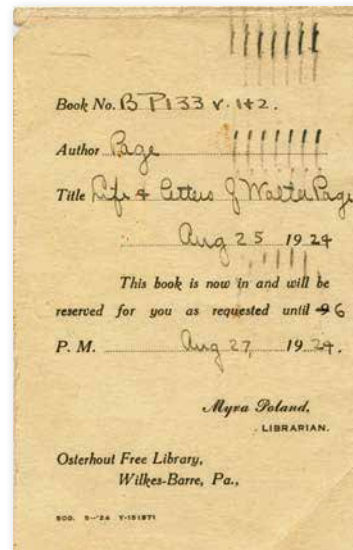 Book No. B P133 v. 1+2.
Author Page
Title Life & Letters of Walter Page
Aug 25 1924
This book is now in and will be
reserved for you as requested until 9 6
P. M. Aug 27, 1924.
Myra Poland,
LIBRARIAN.
Osterhout Free Library,
Wilkes-Barre, Pa.,
500. 5-'24 Y-151971